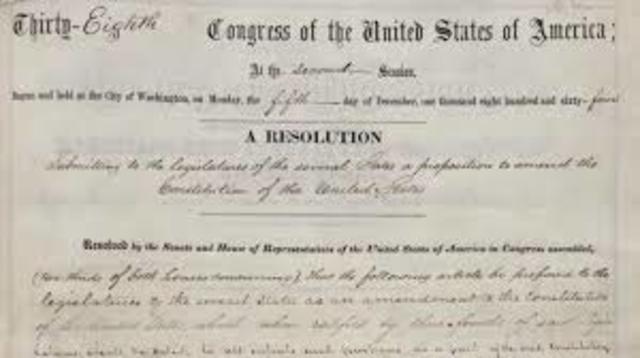 Thirty-Eighth Congress of the United States of America;
At the second Session,
Begun and held at the City of Washington, on Monday, the fifth day of December, one thousand eight hundred and sixty-four
A RESOLUTION
Submitting to the legislatures of the several States a proposition to amend the
Constitution of the United States
Resolved by the Senate and House of Representatives of the United States of America in Congress assembled,
(two thirds of both houses concurring), that the following article be proposed to the
legislatures of the several States as an amendment to the Constitution
of the United States, which when ratified by three-fourths of said
to all intents and purposes, as a part of the said Constitution